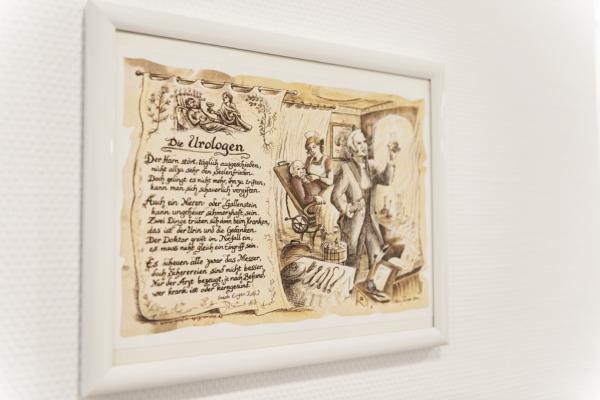 Die Urologen
Der Harn stört, täglich ausgeschieden,
nicht allzu sehr den Seelenfrieden.
Doch gelingt es nicht mehr, ihn zu triften,
kann man sich schauerlich vergiften.
Auch ein Nieren- oder Gallenstein
kann ungeheuer schmerzhaft sein.
Zwei Dinge trüben sich beim Kranken,
das ist der Urin und die Gedanken.
Der Doktor greift im Notfall ein,
es muss nicht gleich ein Eingriff sein.
Es scheuen alle zwar das Messer,
doch Scherereien sind nicht besser,
Nur der Arzt bezeugt, je nach Befund,
wer krank ist oder kerngesund.
(nach Eugen Roth)